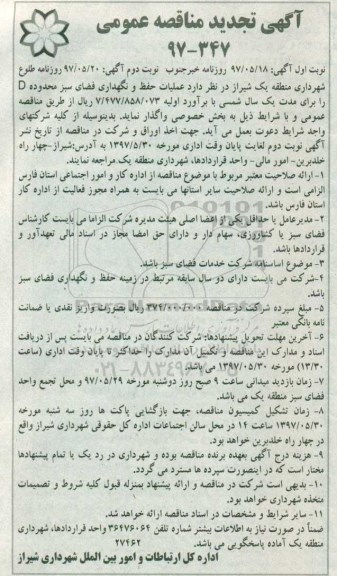 آگهی تجدید مناقصه عمومی
۹۷-۳۴۷
نوبت اول آگهی: ۹۷/۰۵/۱۸ روزنامه خبرجنوب نوبت دوم آگهی: ۹۷/۰۵/۲۰ روزنامه طلوع
شهرداری منطقه یک شیراز در نظر دارد عملیات حفظ و نگهداری فضای سبز محدوده D
را برای مدت یک سال شمسی با برآورد اولیه ۷/۴۷۷/۸۵۸/۰۷۳ ریال از طریق مناقصه
عمومی و با شرایط ذیل به بخش خصوصی واگذار نماید. بدینوسیله از کلیه شرکتهای
واجد شرایط دعوت بعمل می آید. جهت اخذ اوراق و شرکت در مناقصه از تاریخ نشر
آگهی نوبت دوم لغایت پایان وقت اداری مورخه ۱۳۹۷/۵/۳۰ به آدرس:شیراز-چهار راه
خلدبرین- امور مالی - واحد قراردادها، شهرداری منطقه یک مراجعه نمایند.
۱- ارائه صلاحیت معتبر مربوط با موضوع مناقصه از اداره کار و امور اجتماعی استان فارس
الزامی است و ارائه صلاحیت سایر استانها می بایست به همراه مجوز فعالیت از اداره کار
استان فارس باشد.
۲- مدیرعامل یا حداقل یکی از اعضا اصلی هیئت مدیره شرکت الزاما می بایست کارشناس
فضای سبز یا کشاورزی، سهام دار و دارای حق امضا مجاز در اسناد مالی تعهدآور و
قراردادها باشد.
۳- موضوع اساسنامه شرکت خدمات فضای سبز باشد.
۴-شرکت می بایست دارای دو سال سابقه مرتبط در زمینه حفظ و نگهداری فضای سبز
باشد.
۵- مبلغ سپرده شراکت در مناقصه ۳۷۴/۰۰۰/۰۰۰ ریال بصورت واریز نقدی یا ضمانت
نامه بانکی معتبر
۶- آخرین مهلت تحویل پیشنهادها: شرکت کنندگان در مناقصه می بایست پس از دریافت
اسناد و مدارک این مناقصه و تکمیل آن مدارک را حداکثر تا پایان وقت اداری (ساعت
۱۳/۳۰) مورخه ۱۳۹۷/۰۵/۳۰ می باشد.
۷- زمان بازدید میدانی ساعت ۹ صبح روز دوشنبه مورخه ۹۷/۰۵/۲۹ و محل تجمع واحد
فضای سبز منطقه یک می باشد.
۸- زمان تشکیل کمیسیون مناقصه، جهت بازگشایی پاکت ها روز سه شنبه مورخه
۱۳۹۷/۰۵/۳۰ ساعت ۱۴ در محل سالن اجتماعات اداره کل حقوقی شهرداری شیراز واقع
در چهار راه خلدبرین خواهد بود.
۹- هزینه درج آگهی بعهده برنده مناقصه بوده و شهرداری در رد یک یا تمام پیشنهادها
مختار است که در اینصورت سپرده ها مسترد می گردد.
۱۰- بدیهی است شرکت در مناقصه و ارائه پیشنهاد بمنزله قبول کلیه شروط و تصمیمات
متخذه شهرداری خواهد بود.
۱۱- سایر شرایط و مشخصات در اسناد مناقصه ارائه خواهد شد.
ضمناً در صورت نیاز به اطلاعات بیشتر شماره تلفن ۳۶۴۷۶۰۶۴ واحد قراردادها، شهرداری
منطقه یک آماده پاسخگویی می باشد.
۲۷۴۶۲
اداره کل ارتباطات و امور بین الملل شهرداری شیراز
۰۲۱-۸۸۳۴۹۶۷۰